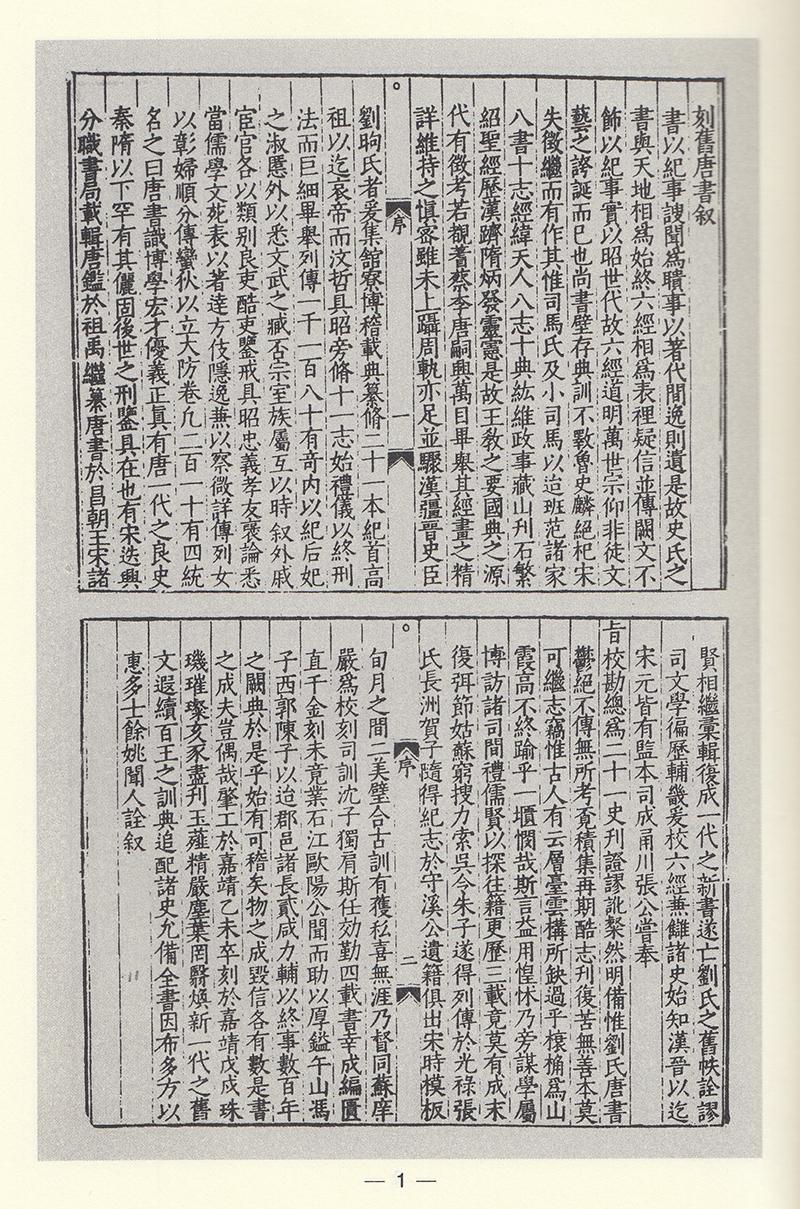 刻舊唐書叙
書以紀事謏聞爲聵事以著代間逸則遺是故史氏之
書與天地相爲始終六經相爲表裡疑信並傳闕文不
飾以紀事實以昭世代故六經道明萬世宗仰非徒文
藝之誇誕而已也尚書壁存典訓不斁魯史麟絕杞宋
失徵繼而有作其惟司馬氏及小司馬以迨班范諸家
八書十志經緯天人八志十典紘維政事藏山刋石繁
紹聖經歷漢躋隋炳發靈憲是故王敎之要國典之源
代有徵考若覩蓍蔡李唐嗣興萬目畢舉其經畫之精
詳維持之愼宻雖未上躡周軌亦足並驟漢疆晉史臣
序
一
劉昫氏者爰集舘寮博稽載典纂脩二十一本紀首高
祖以迄哀帝而汶哲具昭旁脩十一志始禮儀以終刑
法而巨細畢舉列傳一千一百八十有竒内以紀后妃
之淑慝外以悉文武之臧否宗室族屬互以時叙外戚
宦官各以類别良吏酷吏鑒戒具昭忠義孝友褒論悉
當儒學文苑表以著逹方伎隱逸兼以察微詳傳列女
以彰婦順分傳蠻狄以立大防卷凢二百一十有四統
名之曰唐書識博學宏才優義正眞有唐一代之良史
秦隋以下罕有其儷固後世之刑鑒具在也有宋迭興
分職書局載輯唐鑑於祖禹繼纂唐書於昌朝王宋諸
賢相繼彙輯復成一代之新書遂亡劉氏之舊帙詮謬
司文學徧歷輔畿爰校六經兼讎諸史始知漢晉以迄
宋元皆有監本司成甬川張公嘗奉
旨校勘總爲二十一史刋證謬訛粲然明備惟劉氏唐書
鬱絕不傳無所考査積集再期酷志刋復苦無善本莫
可繼志竊惟古人有云層臺雲構所缺過乎榱桷爲山
霞高不終踰乎一櫃憫哉斯言益用惶怵乃旁謀學屬
博訪諸司間禮儒賢以探往籍更歷三載竟莫有成末
復弭節姑蘇窮搜力索吳令朱子遂得列傳於光祿張
氏長洲賀子隨得紀志於守溪公遺籍俱出宋時模板
序
二
旬月之間二美璧合古訓有獲私喜無涯乃督同蘇庠
嚴爲校刻司訓沈子獨肩斯任効勤四載書幸成編匱
直千金刻未竟業石江歐陽公聞而助以厚鎰午山馮
子西郭陳子以迨郡邑諸長貳咸力輔以終事數百年
之闕典於是乎始有可稽矣物之成毀信各有數是書
之成夫豈偶哉肇工於嘉靖乙未卒刻於嘉靖戊戌珠
璣璀璨亥豕盡刋玉薤精嚴塵葉罔翳煥新一代之舊
文遐續百王之訓典追配諸史允備全書因布多方以
惠多士餘姚聞人詮叙
— 1 —